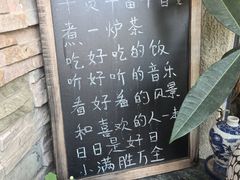 煮一炉茶
吃好吃的饭
听好听的音乐
看好看的风景
和喜欢的人一起
日日是好日
小满胜万全